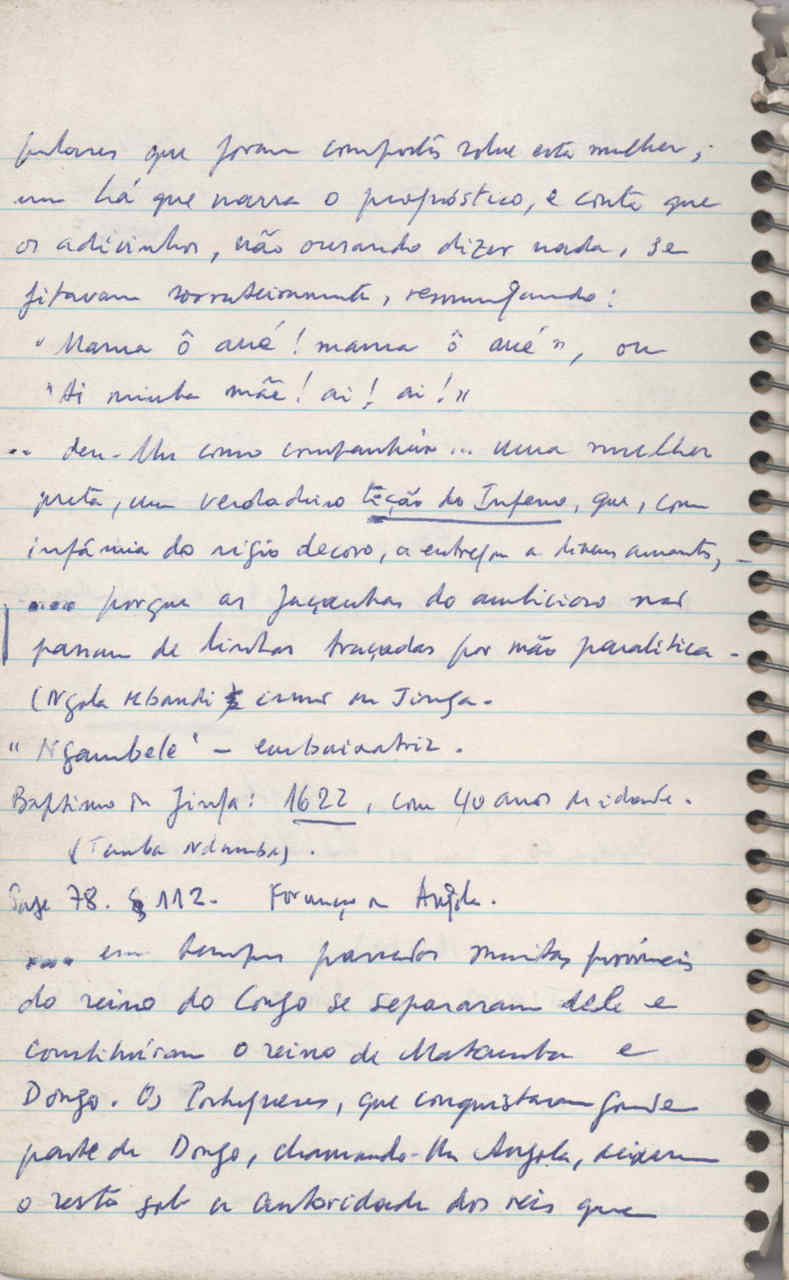 pulares que foram compostos sobre esta mulher,
um há que narra o prognóstico, e conta que
os adivinhos, não ousando dizer nada, se
fitavam sorrateiramente, resmungando:
"Mama ô aué! mama ô aué", ou
"Ai minha mãe! ai! ai!"
.. deu-lhe como companheira ... uma mulher
preta, um verdadeiro tição do Inferno, que, com
infâmia do régio decoro, a entregou a diversos amantes,
.... porque as façanhas do ambicioso não
passam de linhas traçadas por mão paralitica -
(Ngola Mbandi irmão da Jinga.
"Ngambele" - embaixatriz.
Baptismo da Jinga: 1622, com 40 anos de idade.
(Tamba Ndamba).
Page 78. § 112. Formação de Angola.
.... em tempos passados muitas províncias
do reino do Congo se separaram dele e
constituíram o reino de Matamba e
Dongo. Os Portugueses, que conquistaram grande
parte de Dongo, chamando-lhe Angola, deixaram
o resto sob a autoridade dos reis que